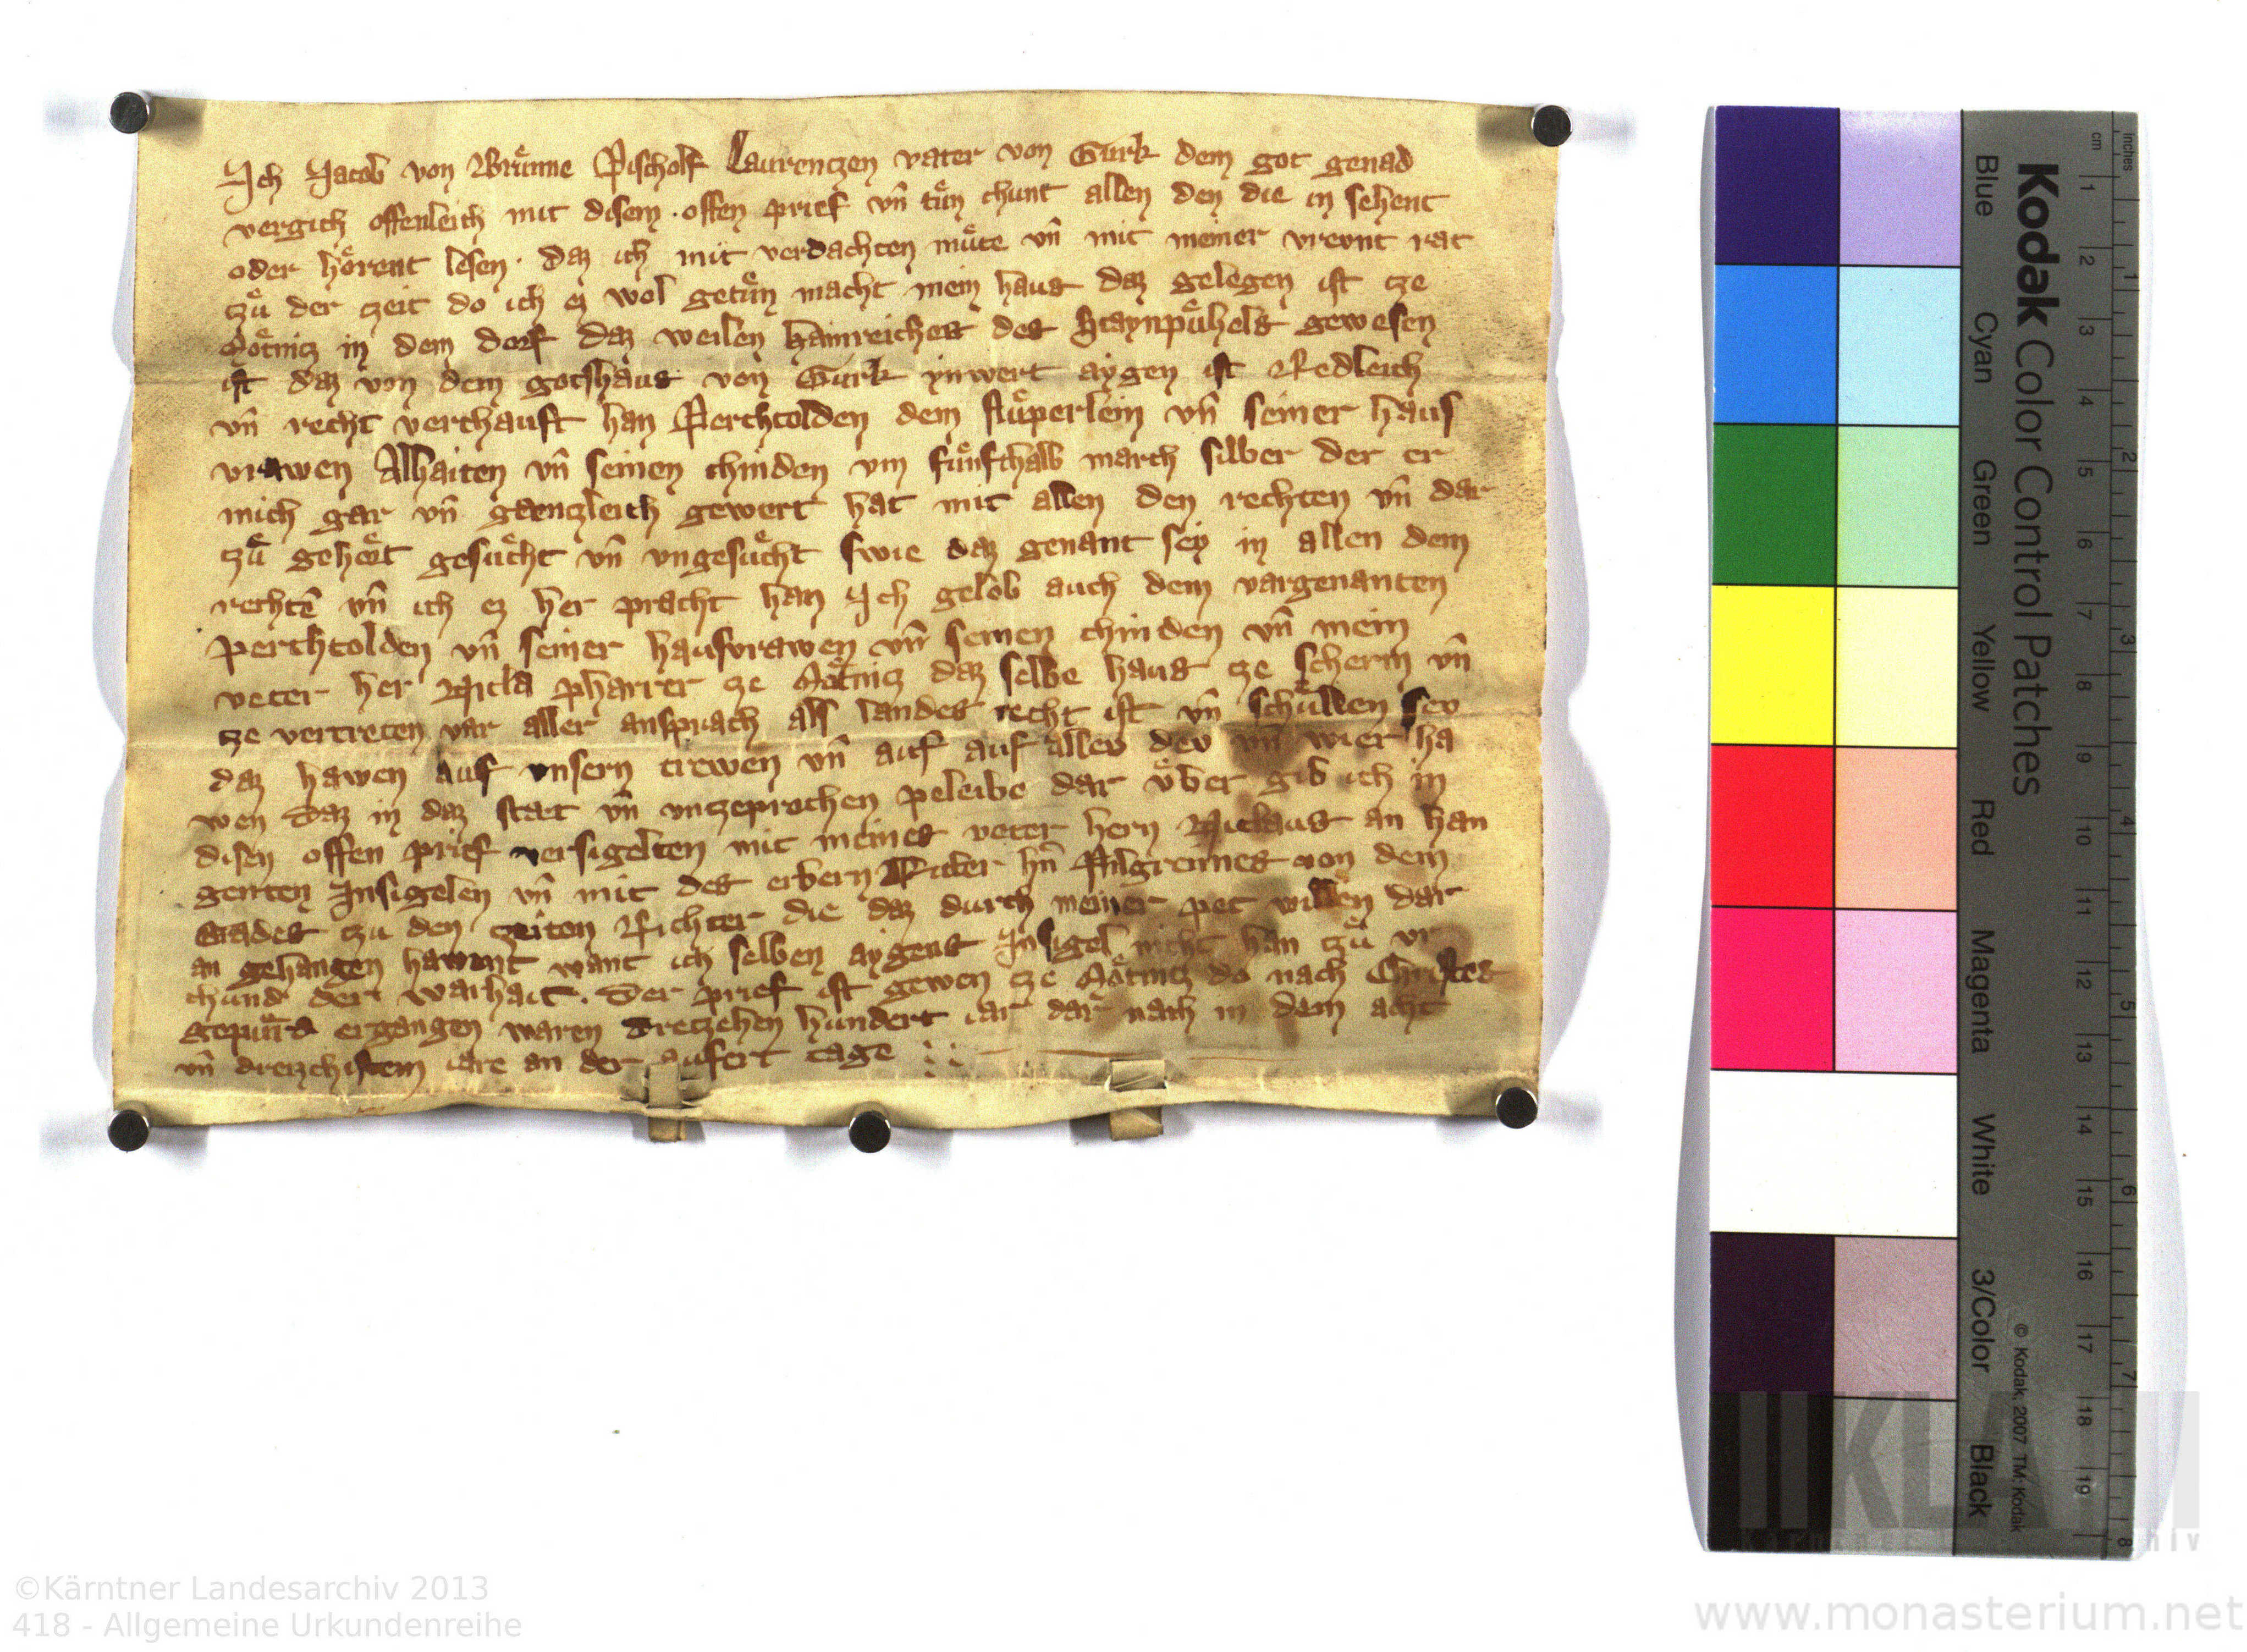 Ich Jacob von Brůnne Pischolf Laurenczen vater von Gurk dem got genad
vergich offenleich mit disem offen prief vn̄ tůn chunt allen den die in sehent
oder hörent lesen · daz ich mit verdachten můte vn̄ mit meiner vreunt rat
czů der czeit do ich ez wol getůn macht mein haus daz gelegen ist cze
Mötnicz in dem dorf daz weilen Hainreiches des Staynpůhels gewesen
ist daz von dem gotshaus von Gurk ynwert aygen ist Redleich
vn̄ recht verchauft han Perchtolden dem vn̄ seiner haus
vrawen Alhaiten vn̄ seinen chinden vm fůnfthalb march silber der er
mich gar vn̄ gaenczleich gewert hat mit allen den rechten vn̄ dar
czů gehört gesůcht vn̄ vngesůcht swie daz genant sey in allen dem
rechtē vn̄ ich ez her pracht han Ich gelob auch dem vargenanten
Perchtolden vn̄ seiner hausvrawen vn̄ seinen chinden vn̄ mein
veter her Nicla pharrer cze Mötnicz daz selbe haus cze scherm vn̄
cze vertreten var aller ansprach als landes recht ist vn̄ schůllen seu
daz hawen auf vnsern trewen vn̄ auf auf alleu deu vn̄ wier ha
wen Daz in daz staet vn̄ vnczeprochen peleibe dar v̊ber gib ich in
disen offen prief versigelten mit meines veter hern Niclaus an han
genten Insigelen vn̄ mit des erbern Ritter hn̄ Pilgreimes von dem
Stades czu den czeiten Richter die daz durch meiner pet willen dar
an gehangen hawent want ich selben aygens Insigel nicht han czů vr
chund der warhait. Der prief ist gewen cze Mötnicz do nach Christes
gepůrd ergangen waren drewczehen hundert iar dar nach in dem acht
vn̄ dreizchistem iare an der aufert tage
Kodak Color Control Patches
Blue Cyan Green Yellow Red Magenta White 3/Color Black
© Kodak, 2007 TM: Kodak
inches 1 2 3 4 5 6 7 8
cm 1 2 3 4 5 6 7 8 9 10 11 12 13 14 15 16 17 18 19
©Kärntner Landesarchiv 2013
418 - Allgemeine Urkundenreihe
www.monasterium.net